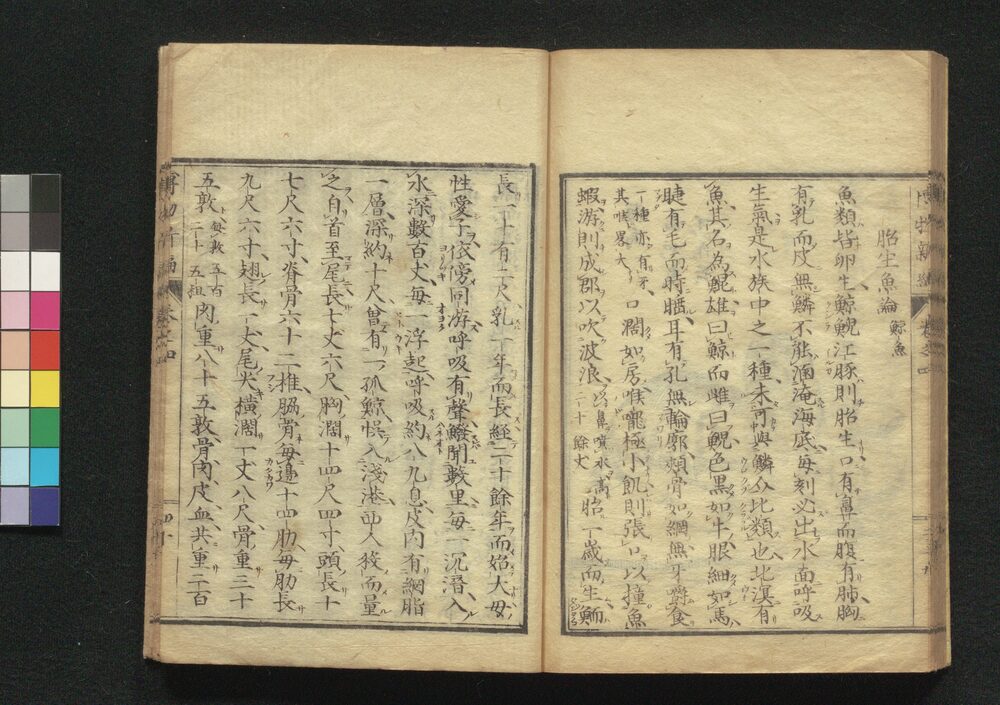 博物新編 卷之四
胎生魚論 鯨魚
魚類皆卵生鯨鯢江豚則胎生口有鼻而腹有肺胸
有乳而皮無鱗不能涵淹海底每刻必出水面呼吸
生氣是水族中之一種未可與鱗介比類也北溟有
魚其名為鯤雄曰鯨而雌曰鯢色黑如牛眼細如馬
睫有毛而時瞎耳有孔無輪郭頰骨如綱無牙嚼食
一種亦有牙
其喉畧大
口濶如房喉嚨極小飢則張口以撞魚
蝦游則成郡以吹波浪
以鼻噴水高
二十餘丈
胎一歲而生鰤
長一十有二尺乳一年而長經二十餘年而始大母
性愛子依傍同游呼吸有聲鏗聞數里每一沉潛入
水深數百丈每一浮起呼吸約八九息皮內有綱脂
一層深約十尺曾有一孤鯨悞入淺港西人殺而量
之自首至尾長七丈六尺胸濶十四尺四寸頭長十
七尺六寸脊骨六十二椎脇骨每邊十四肋每肋長
九尺六寸翅長一丈尾尖橫濶一丈八尺骨重三十
五敦
每敦
一千
五百
五担
肉重八十五敦骨肉皮血共重二百
博物新編 卷之四
四十